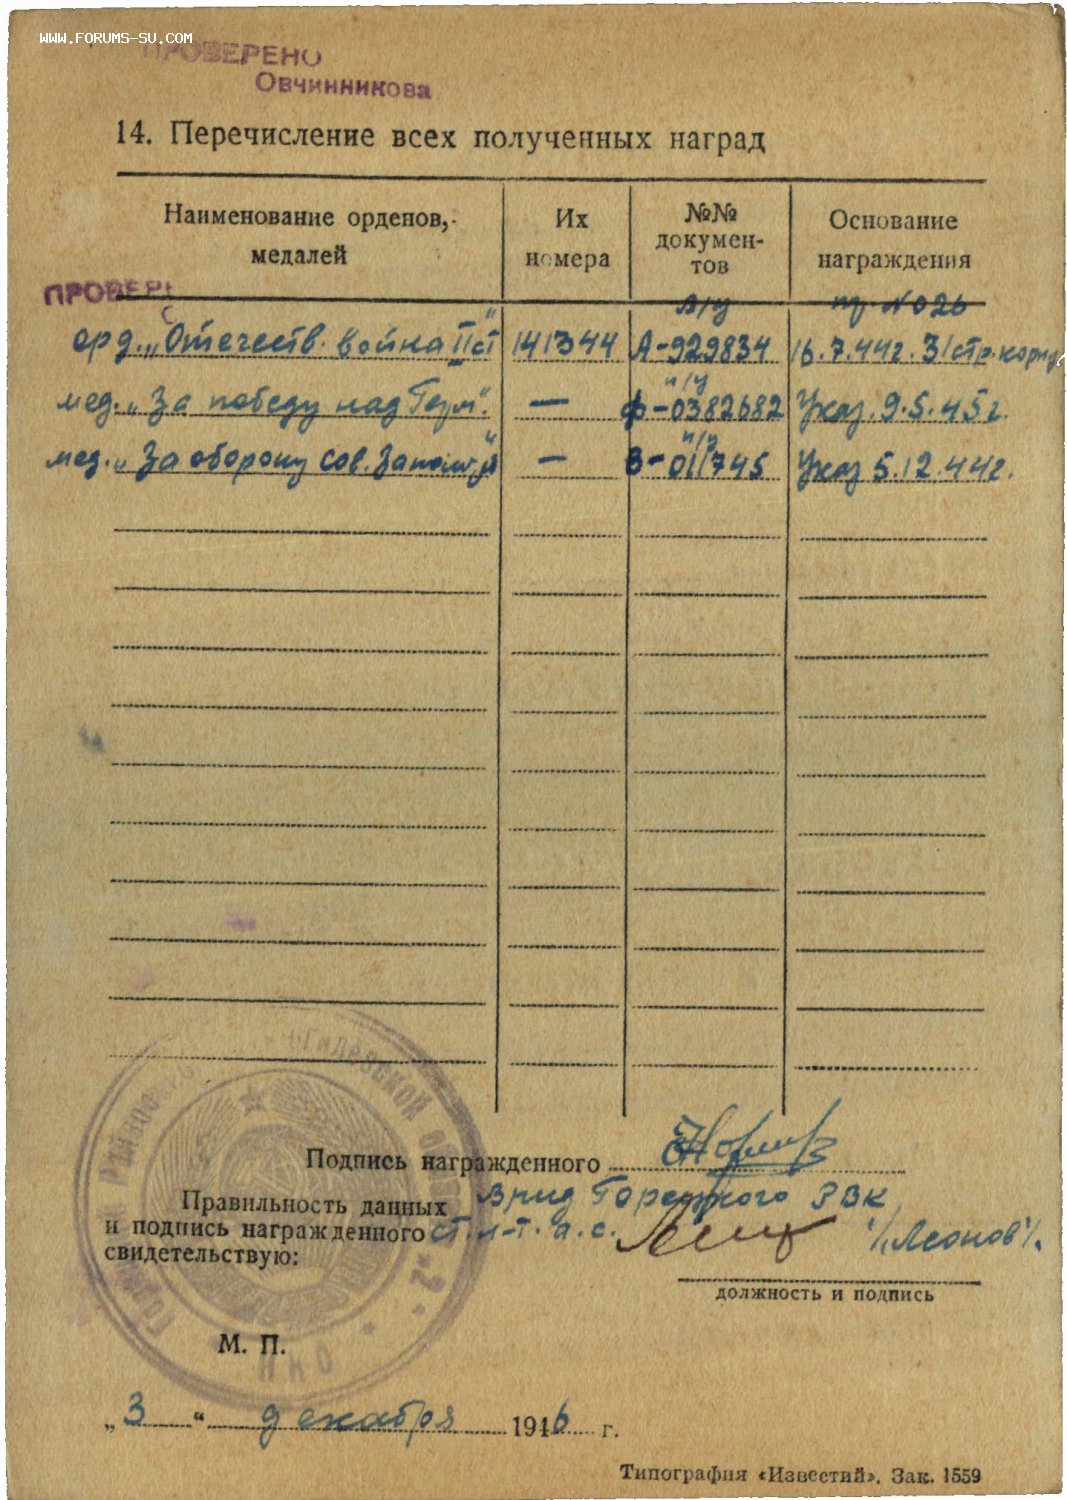 WWW.FORUMS-SU.COM
ПРОВЕРЕНО
Овчинникова
14. Перечисление всех полученных наград
Наименование орденов, медалей
Их номера
№№ документов
Основание награждения
ПРОВЕРЕ
в/у пр. №026
орд. „Отечеств. война II ст" 141344 А-929834 16.7.44г. 31 стр. корпу
мед. „За победу над Герм". — п/у Ф-0382682 Указ. 9.5.45г.
мед. „За оборону Сов. Заполяр" — п/у В-011745 Указ 5.12.44г.
Подпись награжденного
Правильность данных
и подпись награжденного
свидетельствую:
Врид Горецкого РВК
ст. л-т. а.с. /Леонов/.
должность и подпись
М. П.
„3“ декабря 1946 г.
Типография «Известий». Зак. 1559